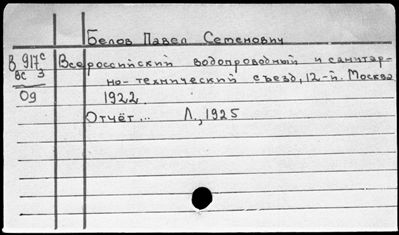 Белов Павел Семенович
В 917с Всероссийский водопроводный и санитар-
вс 3 но-технический съезд, 12-й. Москва
Од 1922.
Отчёт... Л., 1925